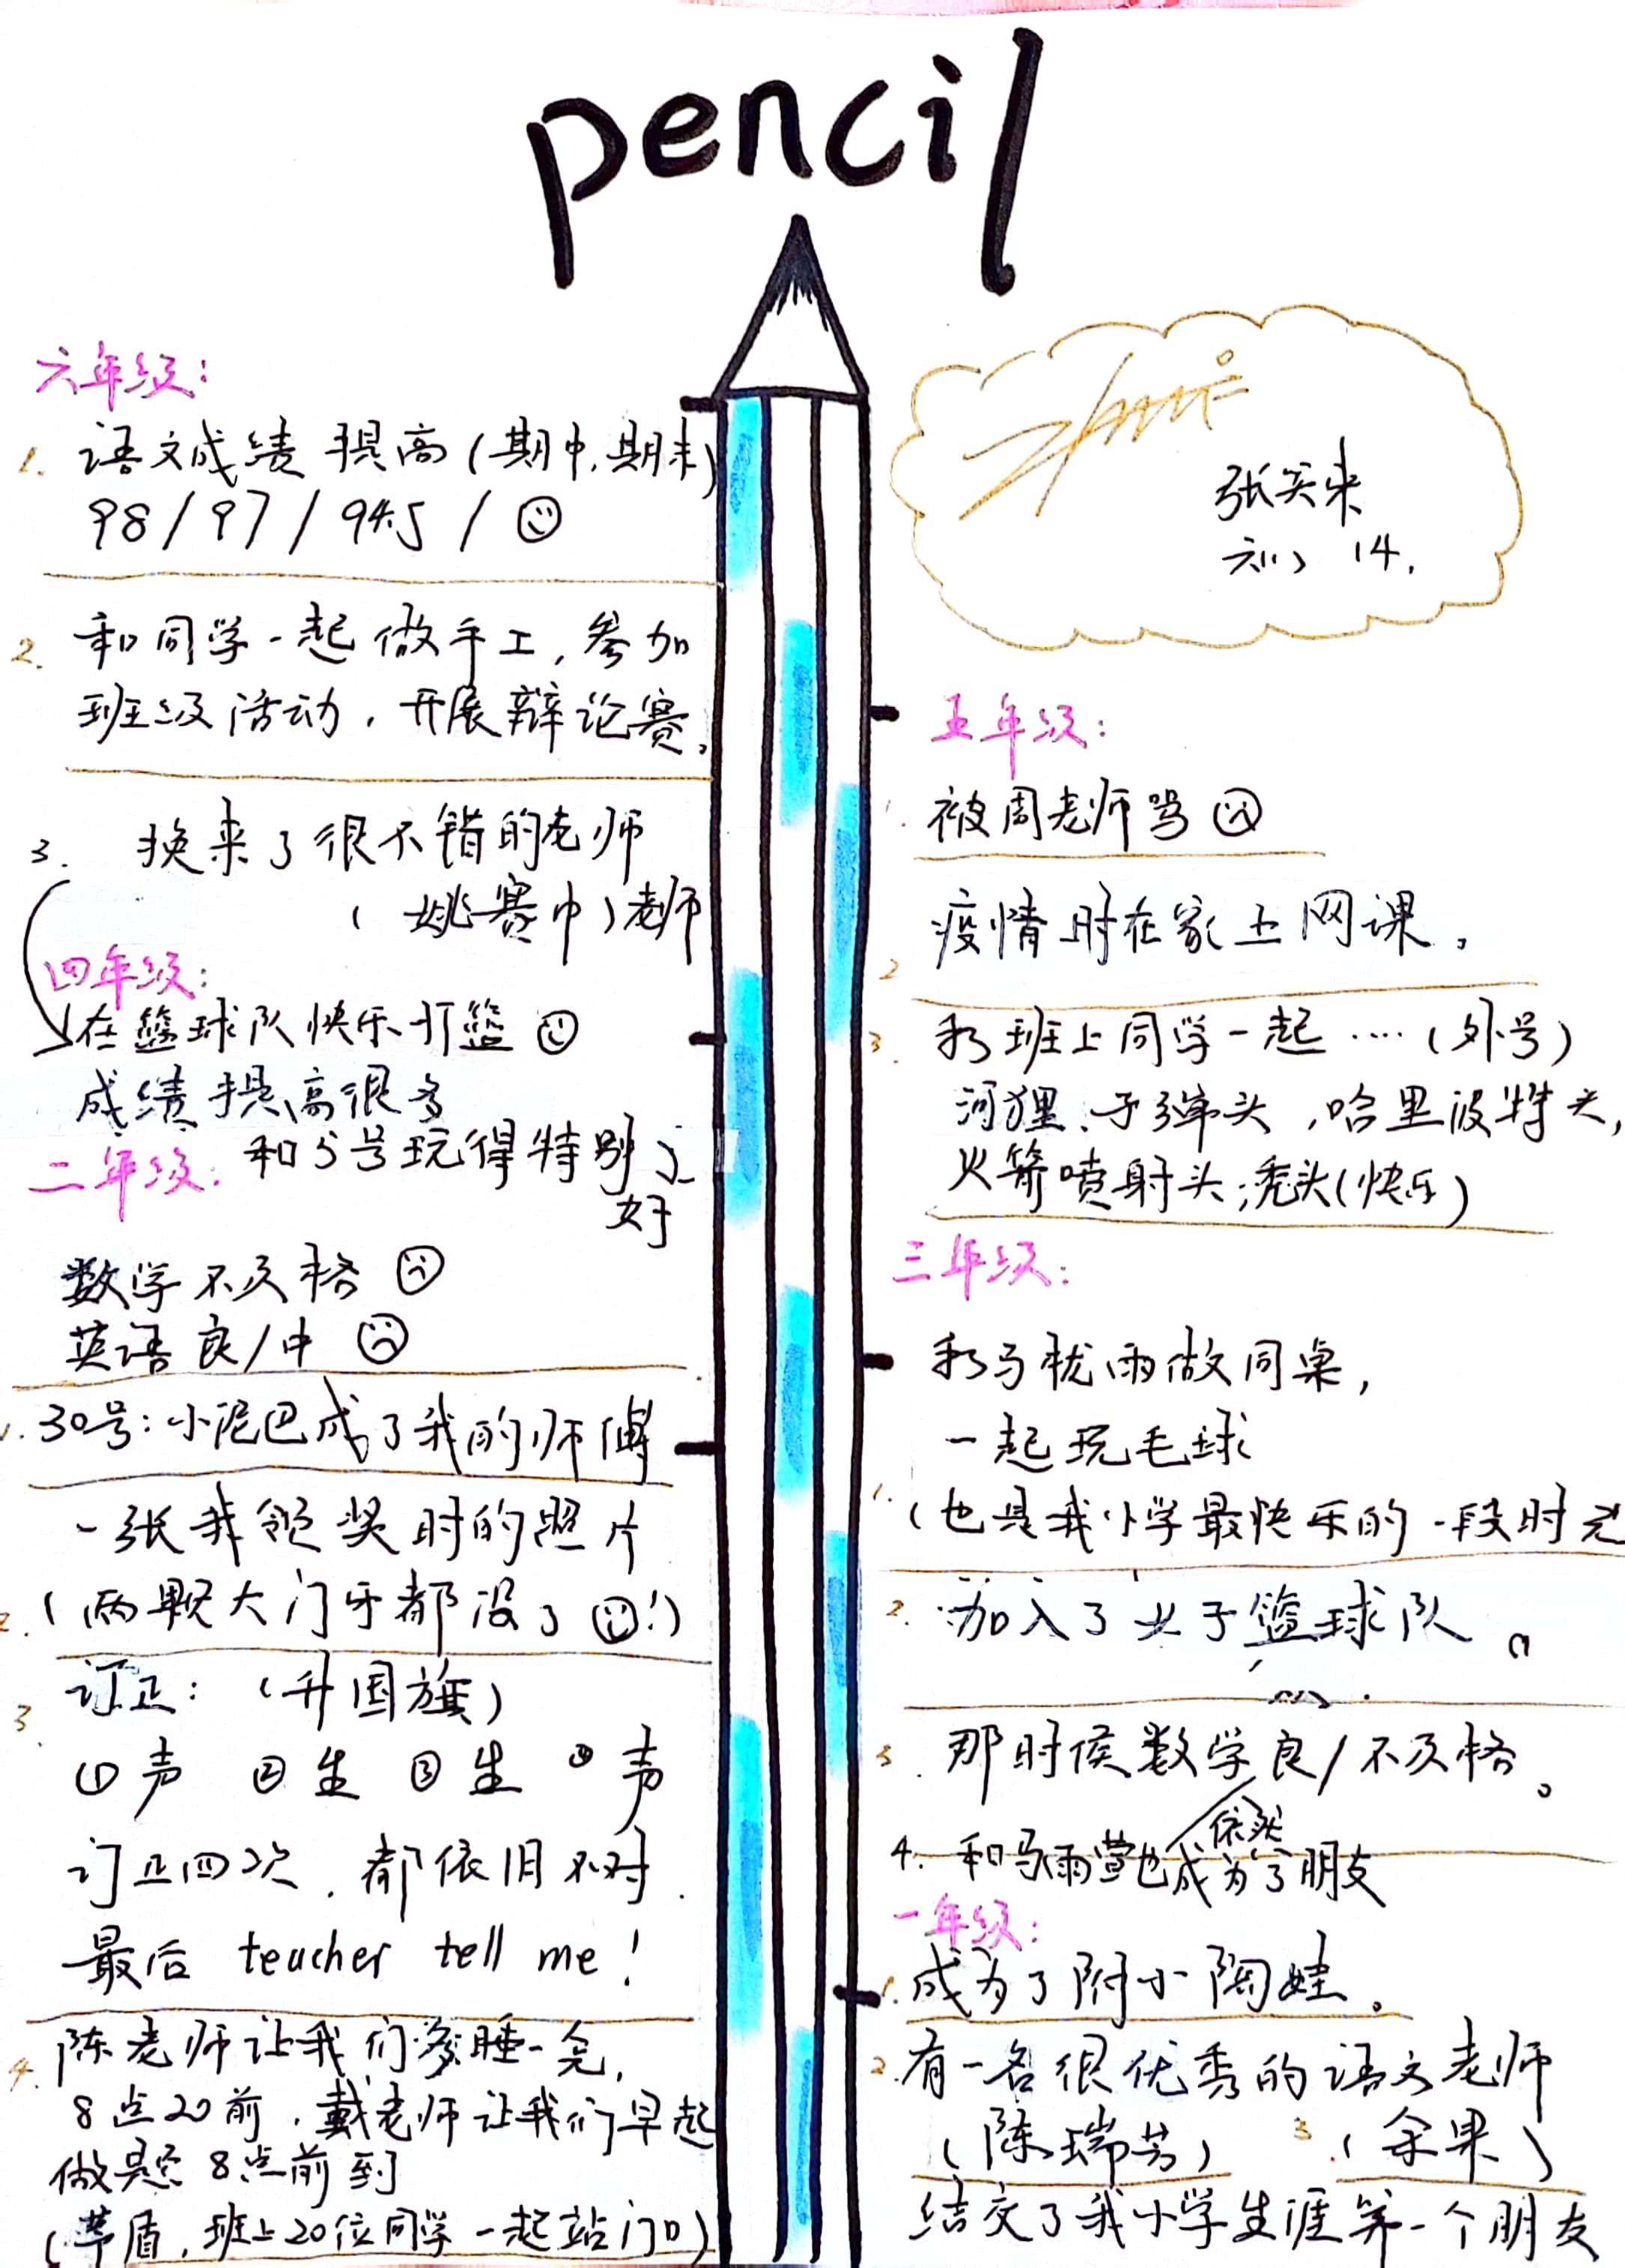 pencil
六年级：
1. 语文成绩提高(期中,期末)
98/97/94.5/
2. 和同学一起做手工,参加
班级活动,开展辩论赛。
3. 换来了很不错的老师
(姚赛中)老师
四年级：
在篮球队快乐打篮
成绩提高很多
和5号玩得特别
好
二年级：
数学不及格
英语良/中
1. 30号：小尼巴成了我的师傅
一张我领奖时的照片
2. (两颗大门牙都没了!)
3. 订正：(升国旗)
①声 ②生 ③生 ④声
订正四次,都依旧不对.
最后 teacher tell me!
4. 陈老师让我们多睡一会,
8点20前,戴老师让我们早起
做题 8点前到
(茅盾,班上20位同学一起站门口)
张笑来
六(1) 14.
五年级：
1. 被周老师骂
2 疫情时在家上网课。
3. 和班上同学一起····(外号)
河狸、子弹头,哈里波特头,
火箭喷射头;秃头(快乐)
三年级：
和马枕雨做同桌,
一起玩毛球
1. (也是我小学最快乐的一段时光
2. 加入了火子篮球队。
3. 那时候数学良/不及格。
依然
4. 和马雨萱也成为了朋友
一年级：
1. 成为了附小陶娃。
2. 有一名很优秀的语文老师
(陈瑞芳) 3. (余果)
结交了我小学生涯第一个朋友